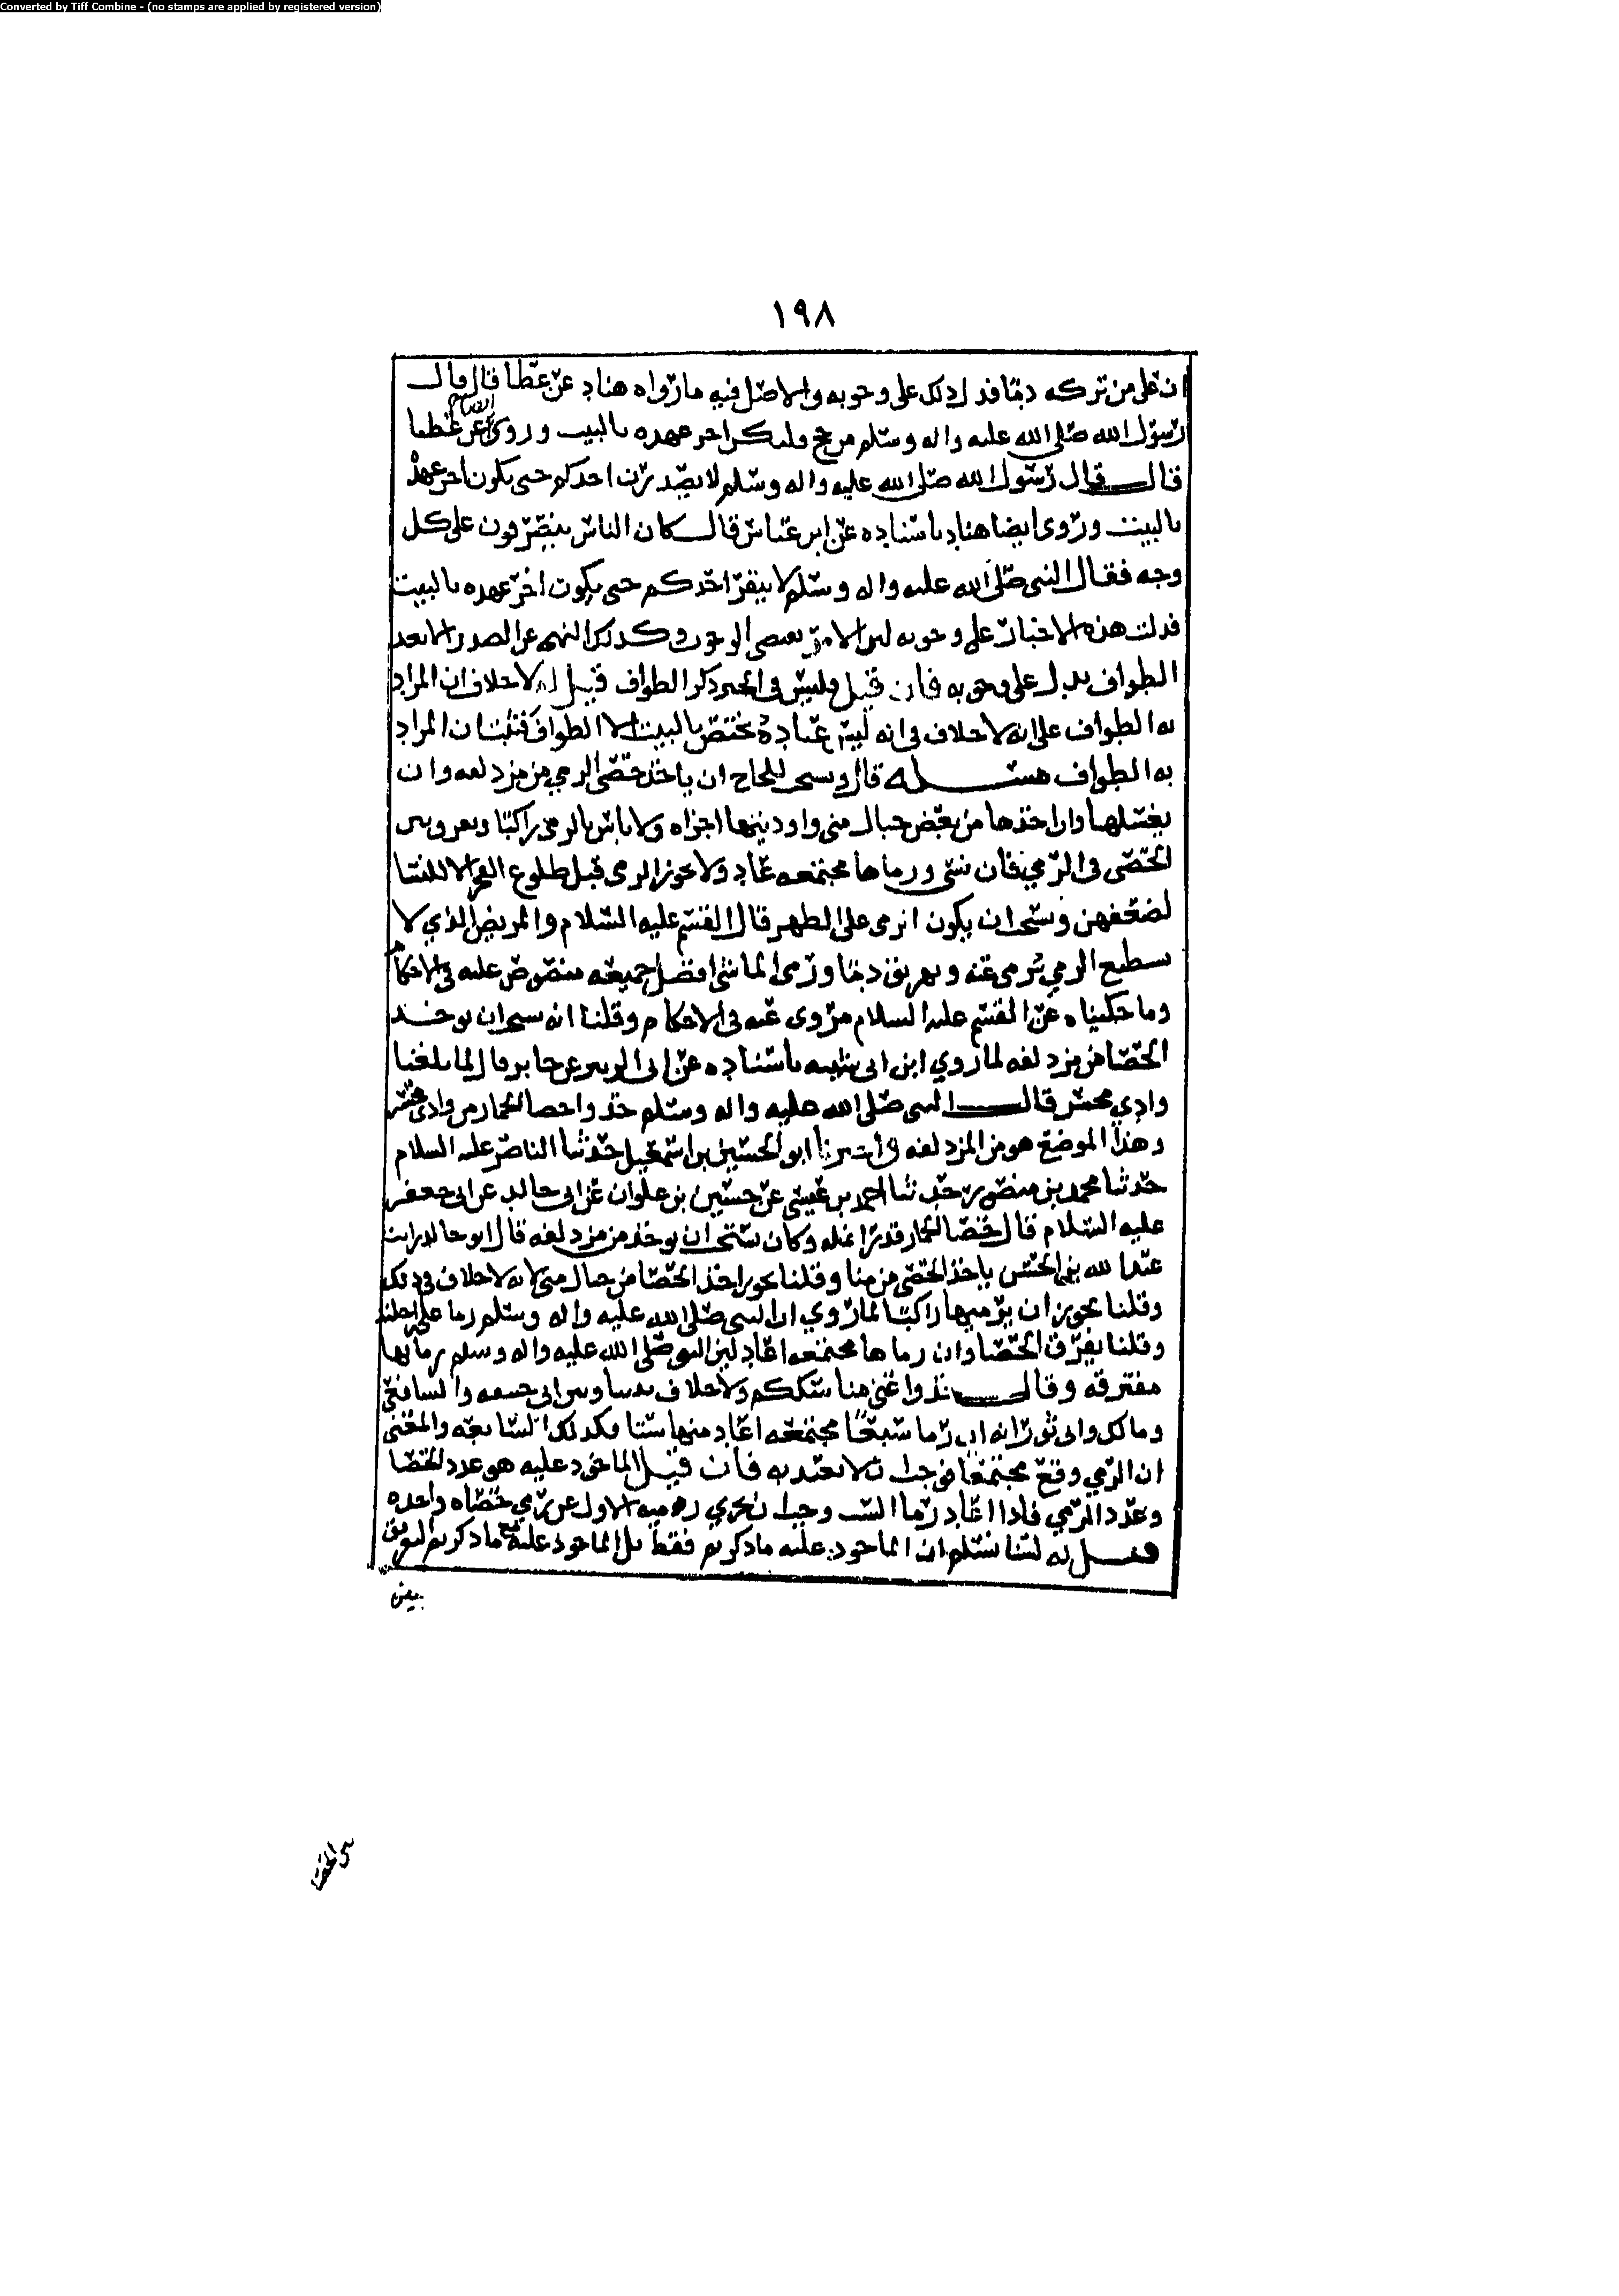 Converted by Tiff Combine - (no stamps are applied by registered version)
١٩٨
ان على من تركه دمًا فدل ذلك على وجوبه والاصل فيه ما رواه هناد عن عطا قال قال
رسول الله صلى الله عليه واله وسلم من حج فليكن اخر عهده بالبيت وروى ايضا عن عطا
قال قال رسول الله صلى الله عليه واله وسلم لا يصدرن احدكم حتى يكون اخر عهده
بالبيت وروى ايضا هناد باسناده عن ابن عباس قال كان الناس ينصرفون على كل
وجه فقال النبى صلى الله عليه واله وسلم لا ينفر احدكم حتى يكون اخر عهده بالبيت
فدلت هذه الاخبار على وجوبه لان الامر يقتضي الوجوب وكذلك النهي عن الصدور الا بعد
الطواف يدل على وجوبه فان قيل وليس في الخبر ذكر الطواف قيل له لا خلاف ان المراد
به الطواف على انه لا خلاف في انه ليس عبادة تختص بالبيت الا الطواف فثبت ان المراد
به الطواف مسئلة قال ويستحب للحاج ان ياخذ حصى الرمي من مزدلفه وان
يغسلها وان اخذها من بعض جبال منى واوديتها اجزاه ولا باس بالرمي راكبا ويفرق بين
الحصى في الرمي فان نسي ورماها مجتمعه عاد ولا يجوز الرمي قبل طلوع الفجر الا للنسا
لضعفهن ويستحب ان يكون الرمى على الطهر قال القسم عليه السلام والمريض الذي لا
يستطيع الرمي يرمى عنه ويهريق دمًا ورمى الماشى افضل جميعه منصوص عليه في الاحكام
وما حكيناه عن القسم عليه السلام مروى عنه في الاحكام وقلنا انه يستحب ان يوخذ
الحصا من مزدلفه لما روي ابن ابى شيبه باسناده عن ابى الزبير عن جابر قال لما بلغنا
وادي محسر قال النبى صلى الله عليه واله وسلم خذوا حصا الجمار من وادى محسر
وهذا الموضع هو من المزدلفه واخبرنا ابو الحسين بن اسمعيل حدثنا الناصر عليه السلام
حدثنا محمد بن منصور حدثنا احمد بن عيسى عن حسين بن علوان عن ابى خالد عن ابى جعفر
عليه السلام قال حصا الجمار قدر انمله وكان يستحب ان يوخذ من مزدلفه قال ابو خالد رايت
عبدا لله بن الحسن ياخذ الحصى من منا وقلنا يجوز اخذ الحصا من جبال منى لانه لا خلاف في ذلك
وقلنا يجوز ان يرميها راكبًا لما روي ان النبى صلى الله عليه واله وسلم رما على راحلته
وقلنا يفرق الحصا وان رماها مجتمعه اعاد لان النبي صلى الله عليه واله وسلم رمى بها
مفترقه وقال خذوا عنى مناسككم ولا خلاف بيننا وبين ابى حنيفه والشافعي
ومالك وابى ثور انه ان رما سبعًا مجتمعه اعاد منها ستا فكذلك السابعه والمعنى
ان الرمي وقع مجتمعًا فوجب ان لا يعتد به فان قيل الماخوذ عليه هو عدد الحصا
وعدد الرمي فاذا اعاد رما الست وجب ان يجزي رميه الاول عن رمي حصاه واحده
قيل له لسنا نسلم ان الماخوذ عليه ما ذكرتم فقط بل الماخوذ عليه مع ما ذكرتم التفريق
بين